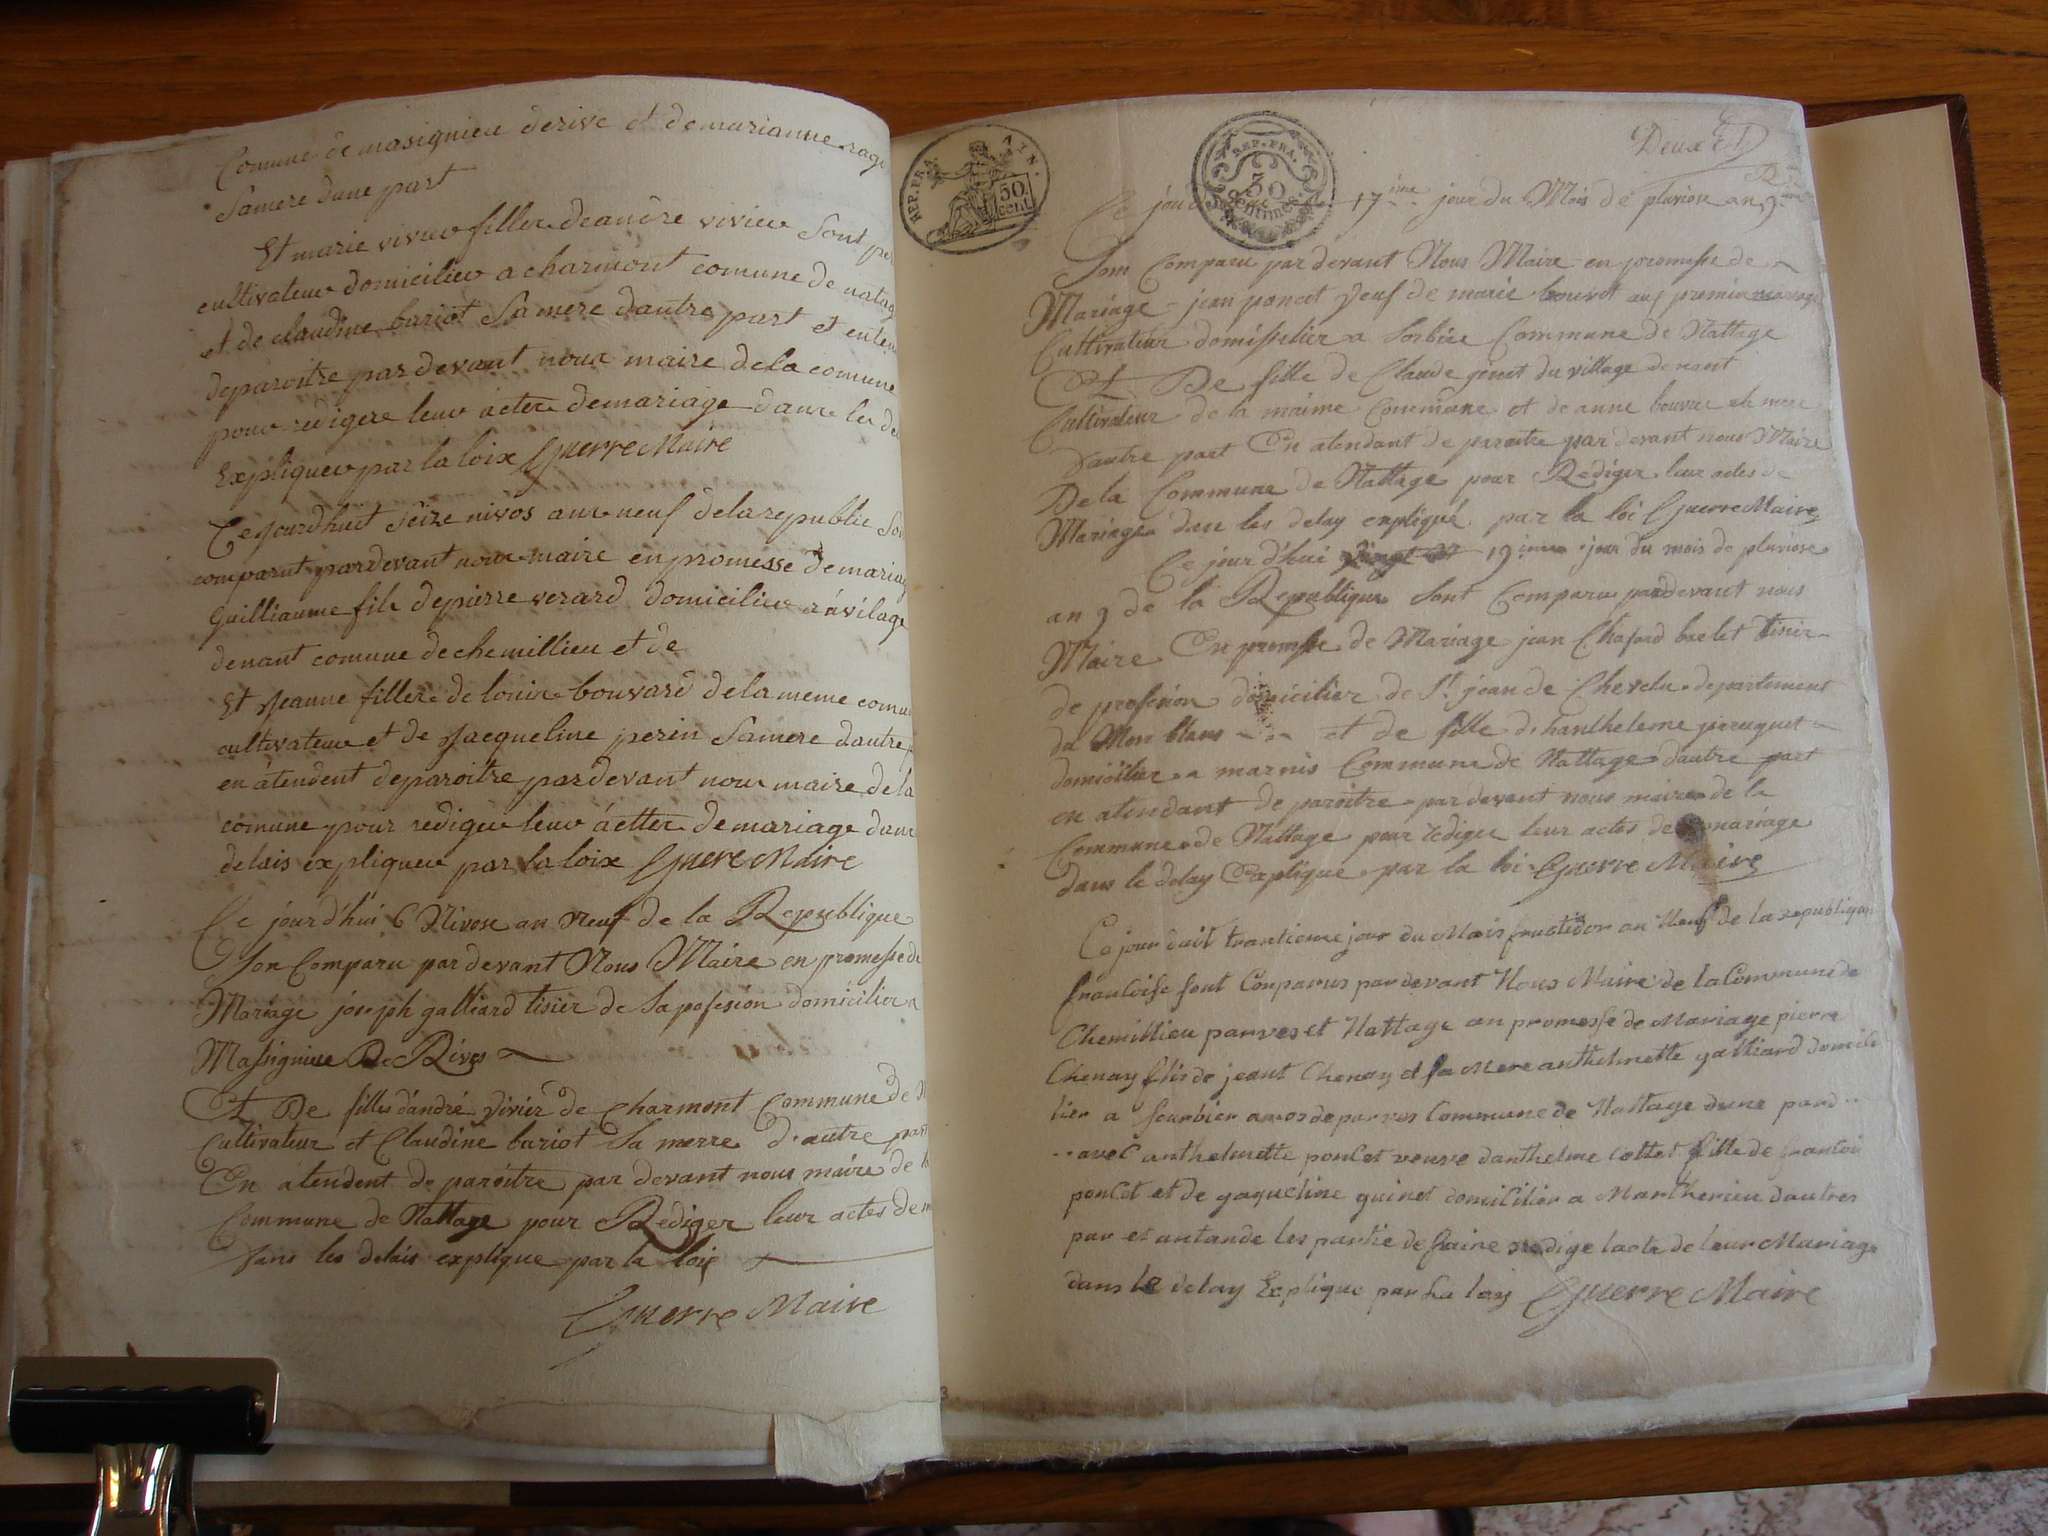 Comune de masignieu derive et demarianne rage
Samere dune part
Et marie vivieu fillee deandre vivieu Sont per
cultivateur domicilieu a charmont comune de natag
et de claudine bariot Samere dautre part et enten
deparoitre par devant nour maire dela comune
pour redigere leur actere demariage dans les de
Expliqueer par la loix Guerre Maire
Ce Jourdhuit Seize nivos anne neuf dela republic Son
comparut pardevant nour maire en promesse demariag
Guilliaume fils depierre verard domicilieu àvilage
denant comune dechemillieu et de
Et Jeanne fillere delouis bouvard delameme comun
cultivateur et de Jacqueline perin Samere dautre p
en àtendent deparoitre pardevant nour maire dela
comune pour redigeer leur àctter demariage dans
delais expliqueer par la loix Guere Maire
Ce jourd'hui 6 Nivose an Neuf de la Republique
Son Comparu par devant Nous Maire en promesse de
Mariage joseph galliard tisier de Sa pofesion domicilier a
Massignieu De Rives
Et De filles d'andré Vivier de Charmont Commune de N
Cultivateur et Claudine bariot Sa merre d'autre part
En atendent de paroitre par devant nous maire de la
Commune de Nattage pour Rediger leur actes de m
dans les delais explique par la loix
Guerre Maire
REP. FRA. AIN.
50 cent
REP. FRA.
50
Centimes
Deux Et
Ce jourd 17 ième jour du Mois de pluviose an 9 ième
Son Comparu par devant Nous Maire en promesse de
Mariage jean poncet Veuf de marie bouvot aux premier mariage
Cultivateur domissilier a Sorbier Commune de Nattage
Et De fille de Claude genet du village de nant
Cultivateur de la maime Commune et de anne bouvier sa mere
d'autre part En atendant de paroitre par devant nous Maire
De la Commune de Nattage pour Rediger leur actes de
Mariage dans les delay expliqué par la loi Guerre Maire
Ce jour d'hui 19 ieme jour du mois de pluviose
an 9 de la Republique Sont Comparu pardevant nous
Maire En promesse de Mariage jean Chaford baelet tisier
de profession domicilier de St jean de Chevelu departement
du Mon blanc et de fille d'hantheleme perruquet
domicilier a marnis Commune de Nattage dautre part
en atendant de paroitre par devent nous maire de la
Commune de Nattage pour rediger leur actes de mariage
dans le delay Explique par la loi Guerre Maire
Ce jour duit trantieme jour du Mois fructidor an Neuf de la republique
francoise sont Conparus par devant Nous Maire de la Commune de
Chemillieu parves et Nattage an promesse de Mariage pierre
Chenay filis de jeant Chenay et sa Mere anthelmette galliard domici
lier a sourbier amos de parves Commune de Nattage dune pard
avec anthelmette poncet veuve danthelme Cottet fille de francoi
poncet et de gaqueline guinet domicilier a Martherieu dautres
par et antande les partie de faire redige lacte de leur Mariage
dans le delay Explique par La loy Guerre Maire
3